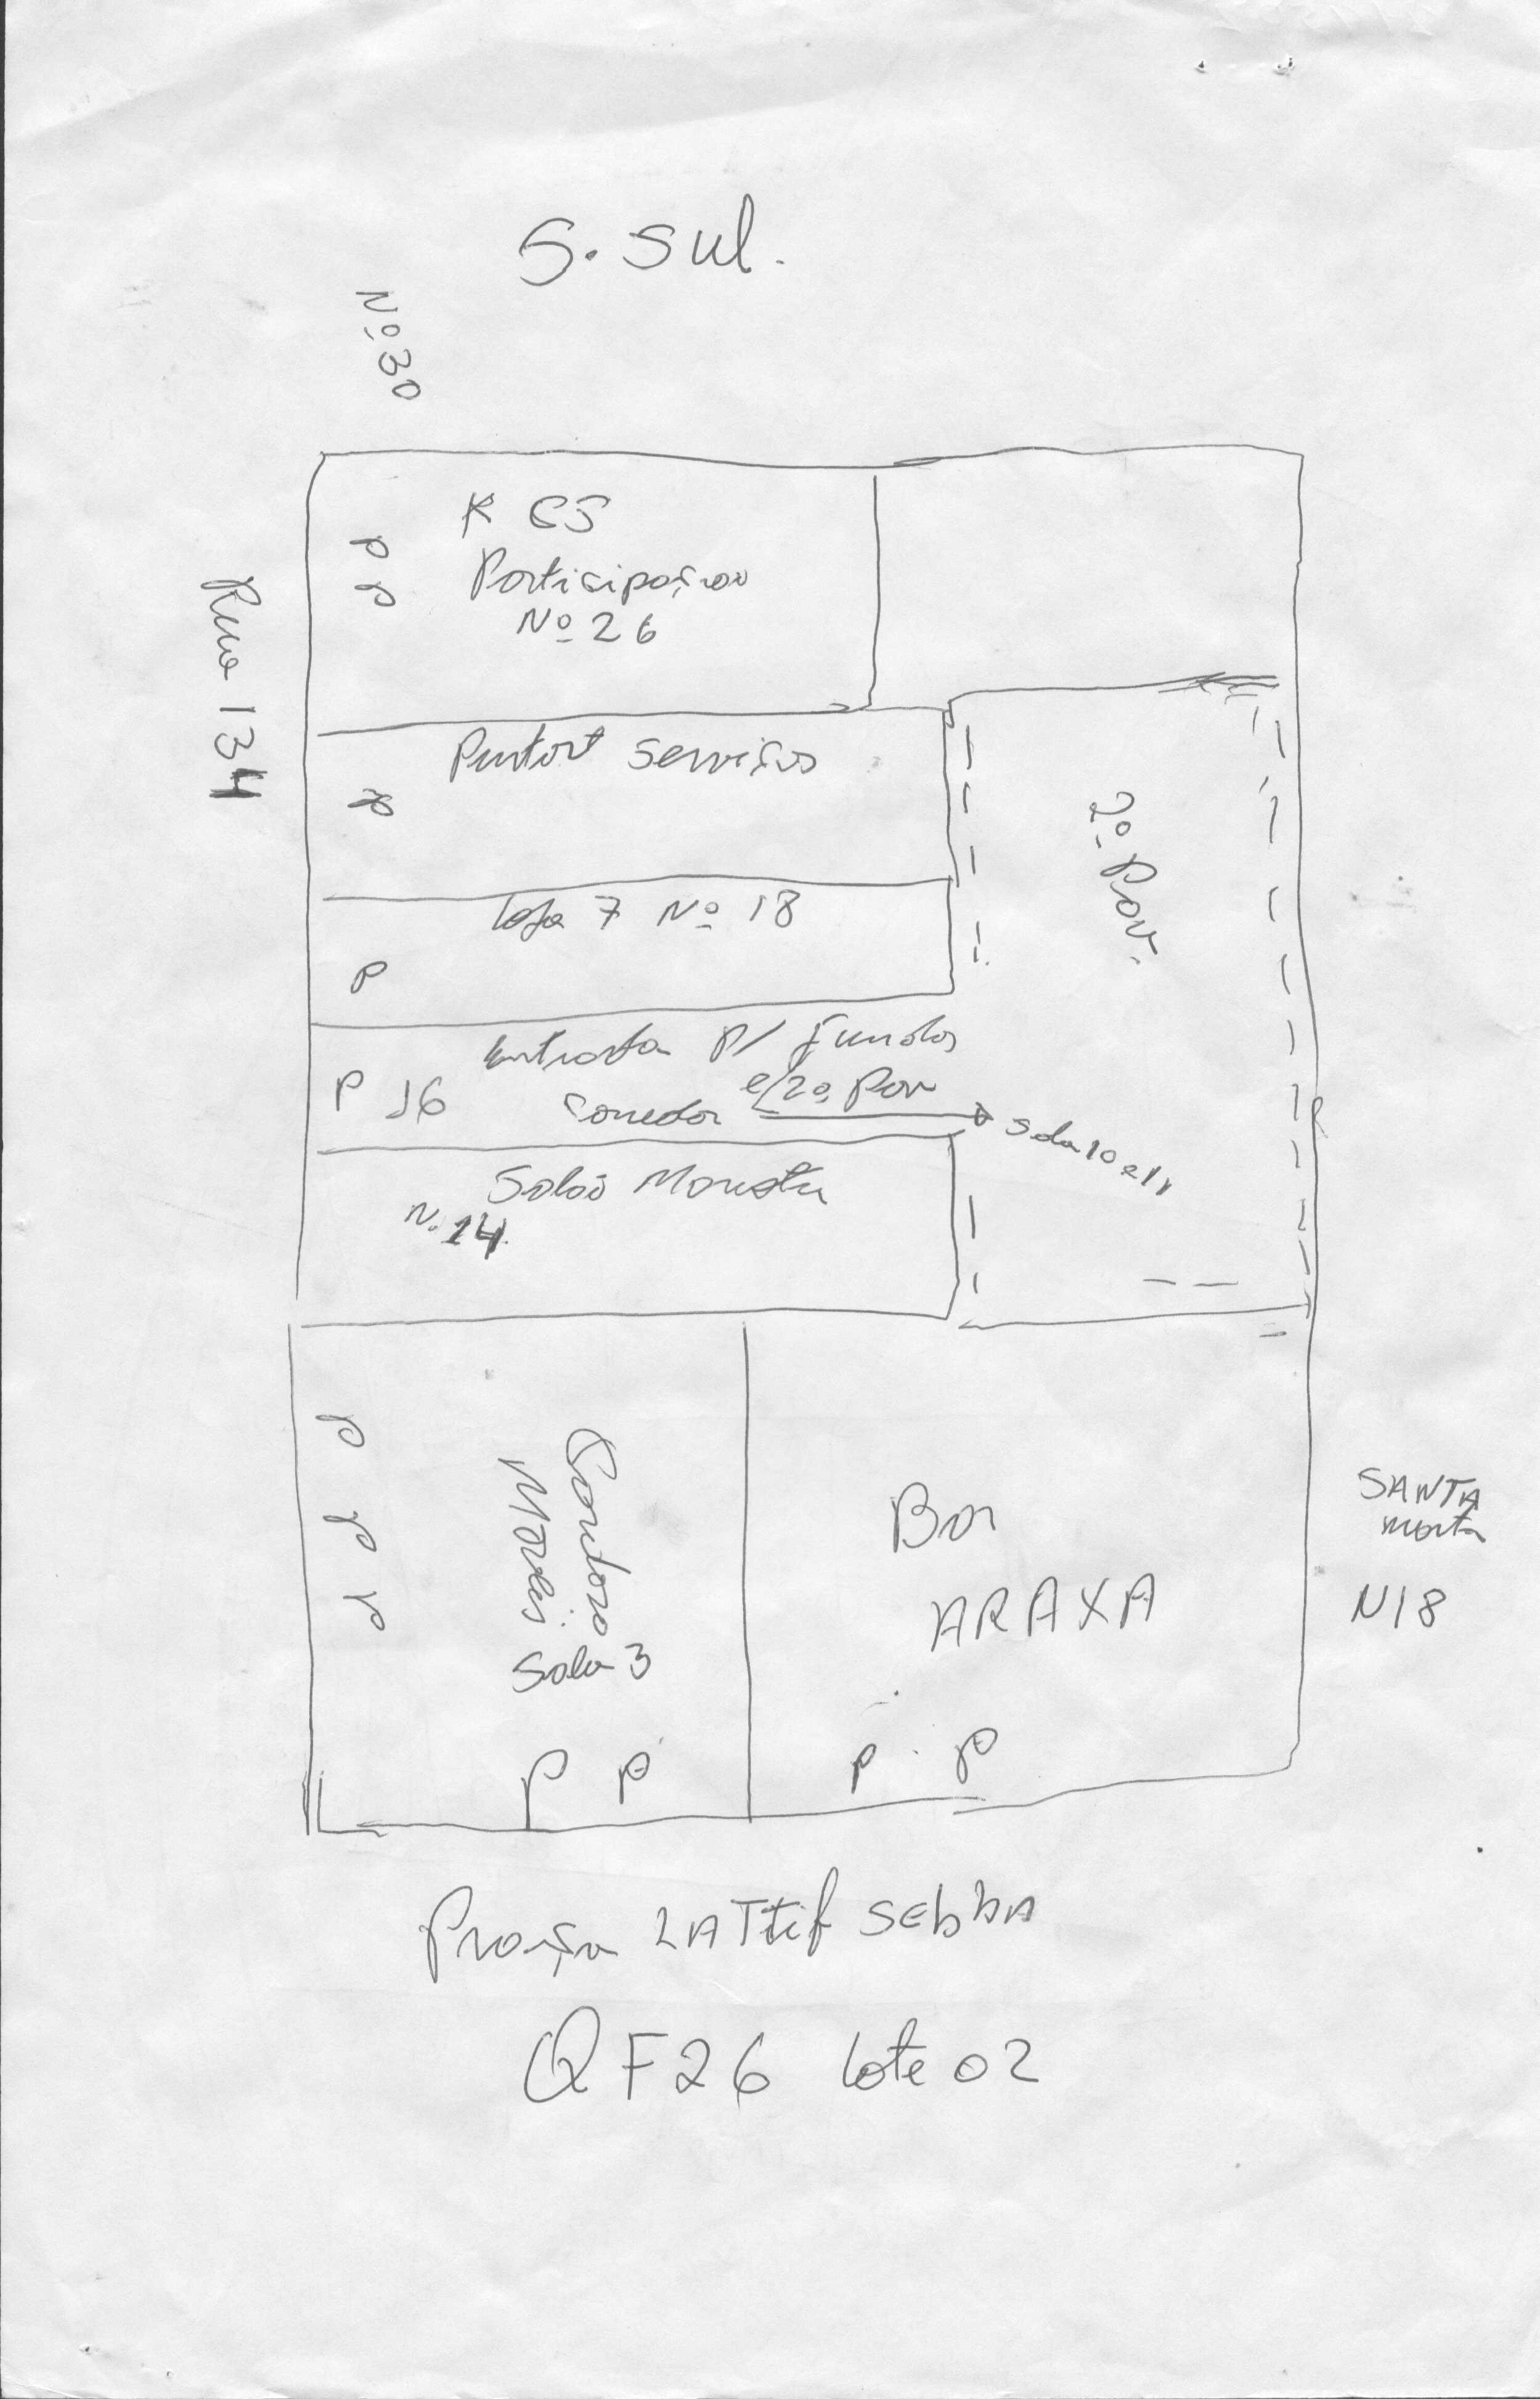 S. Sul.
Nº 30
Rua 134
K
Participações
Nº 26
P P
Serviços
P
Loja 7 Nº 18
P
Entrada p/ Fundos
e/2º Pav
P 16 Corredor
Sala 10 e 11
2º Pav.
Salão
N. 14
P P P
Cardoso
Moveis
Sala 3
P P
Bar
ARAXA
P P
SANTA
Marta
N18
Praça LATTIF SEBBA
QF26 Lote 02